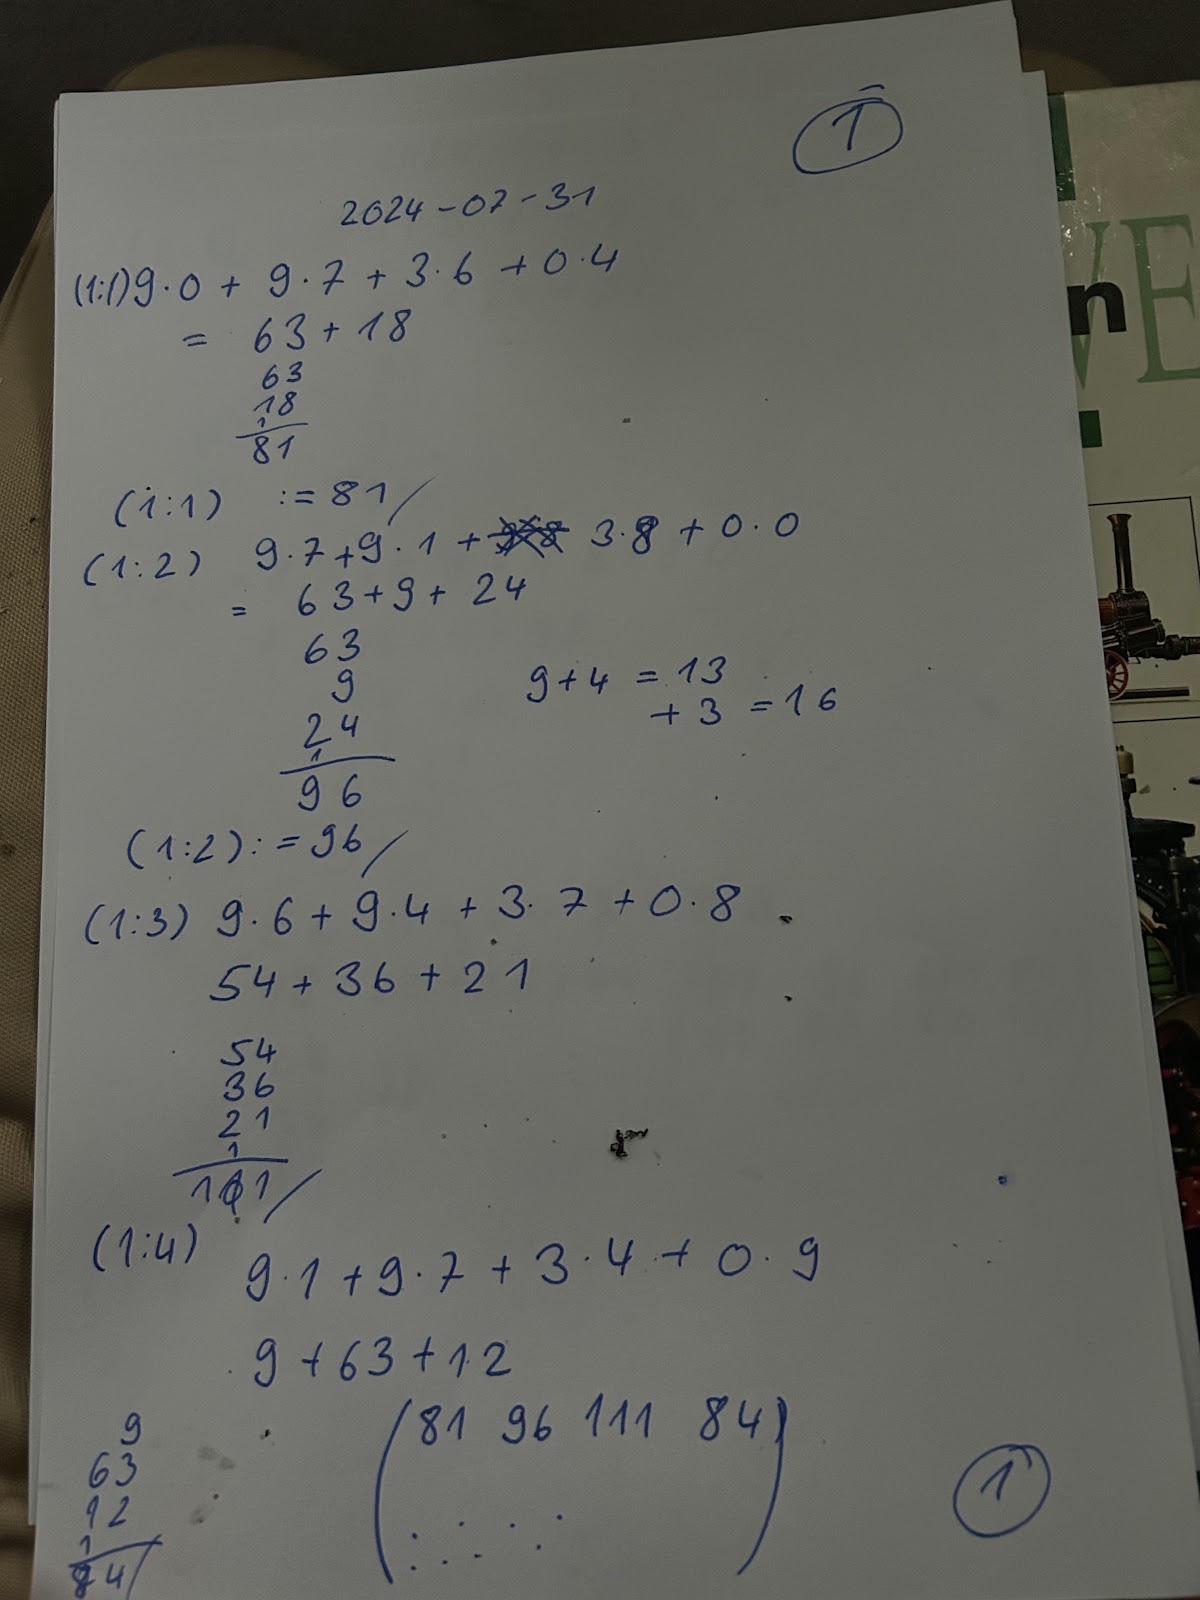 1
2024-07-31
(1:1) 9·0 + 9·7 + 3·6 + 0·4
= 63 + 18
63
18
1
81
(1:1) := 81/
(1:2) 9·7 + 9·1 + 3·8 + 0·0
= 63 + 9 + 24
63
9
24
1
96
9 + 4 = 13
+ 3 = 16
(1:2) := 96/
(1:3) 9·6 + 9·4 + 3·7 + 0·8
54 + 36 + 21
54
36
21
1
111/
(1:4)
9·1 + 9·7 + 3·4 + 0·9
9 + 63 + 12
9
63
12
1
84/
(81 96 111 84)
1
n
VE